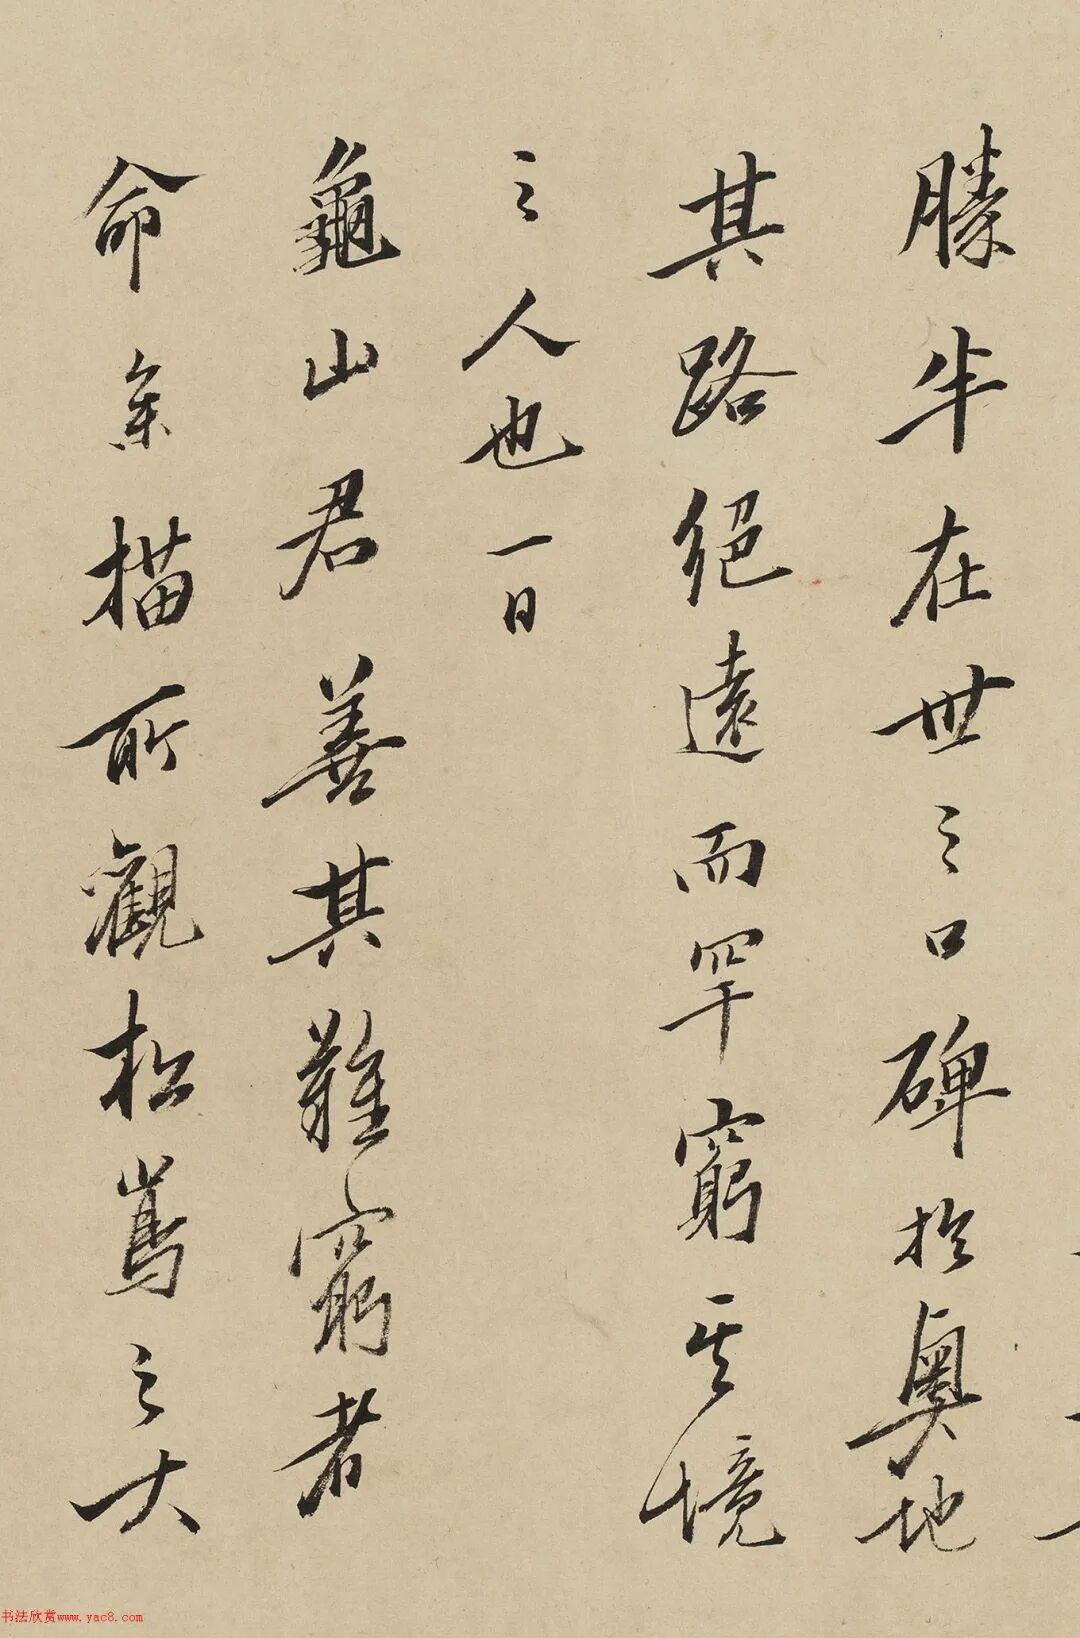 勝半在世之口碑於奧地
其路絕遠而罕窮其境
之人也一日
龜山君善其難窮者
命余描所觀松嶌之大
书法欣赏www.yac8.com